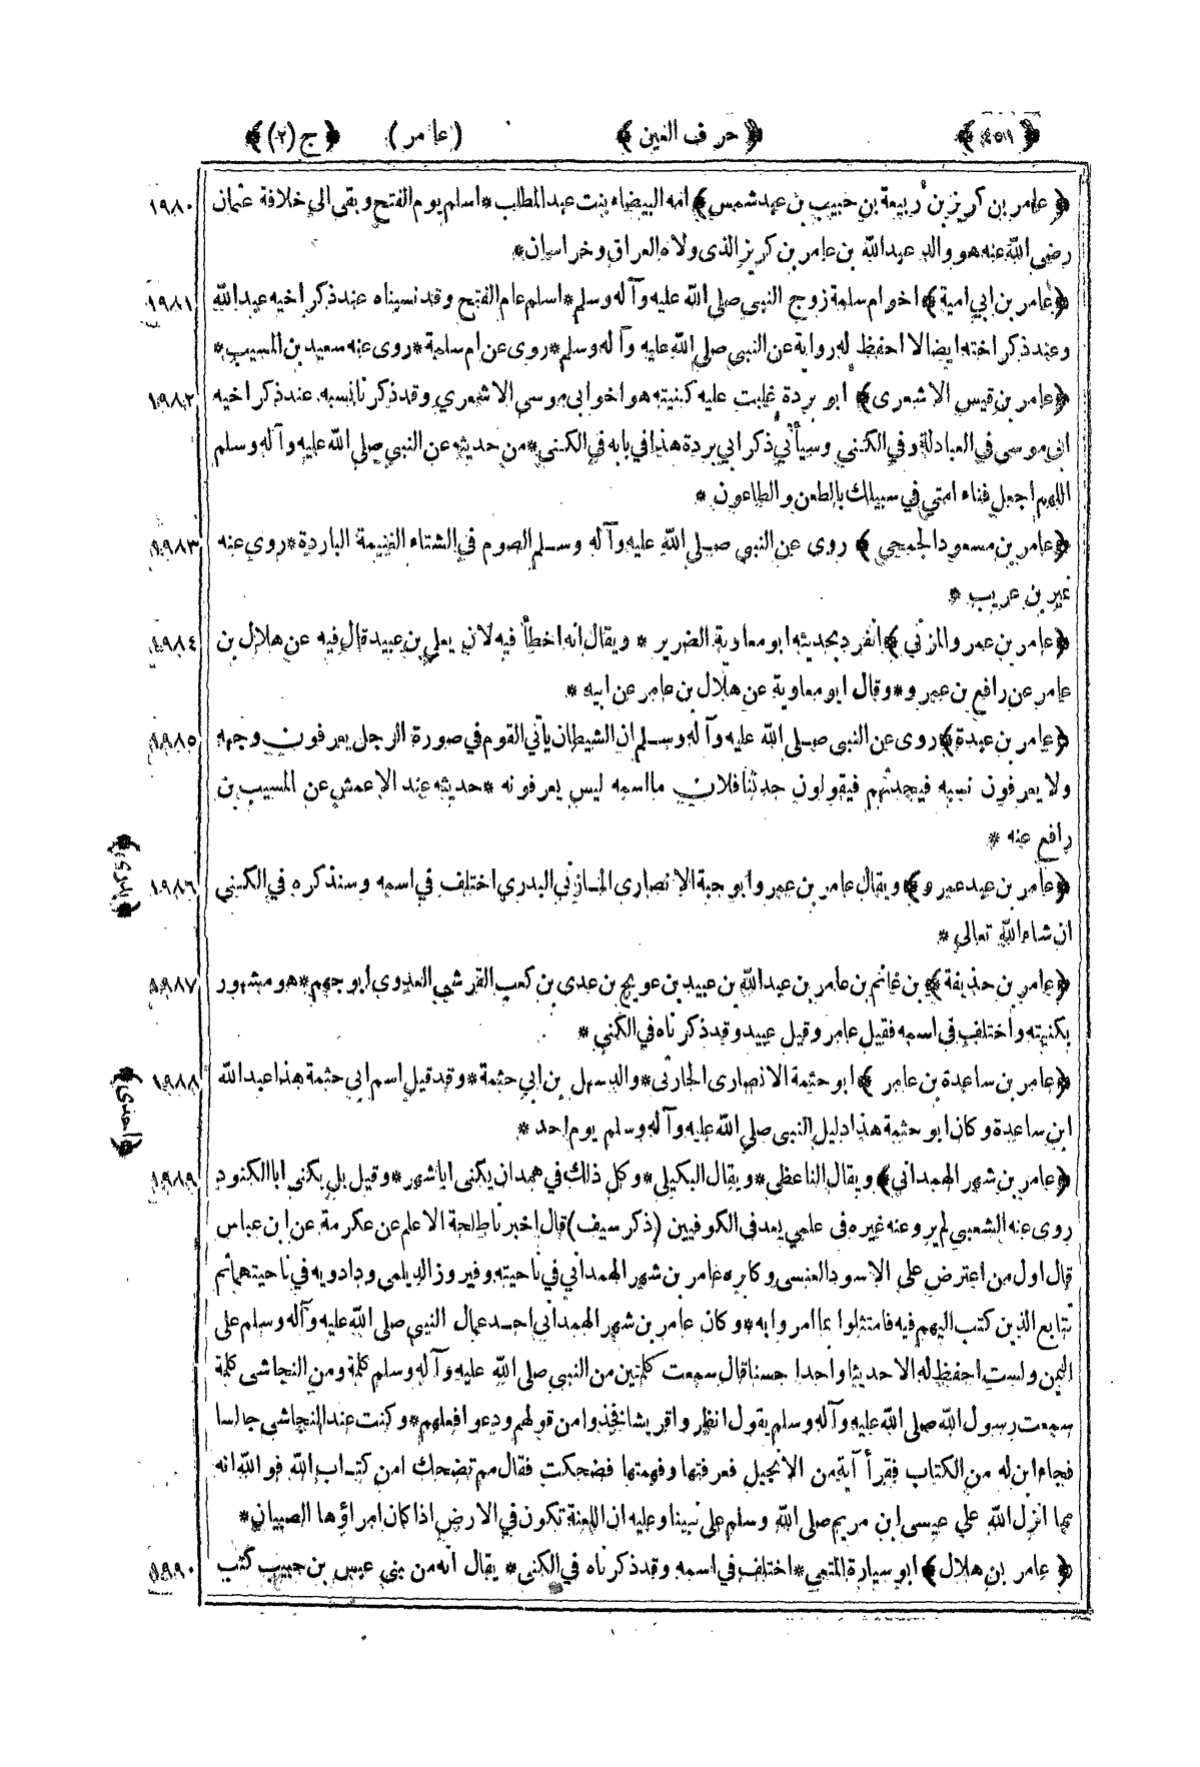 ﴿ ٤٥٨ ﴾ ﴿ حرف العين ﴾ ( عامر ) ﴿ ج (٢) ﴾
﴿ عامر بن كريز بن ربيعة بن حبيب بن عبد شمس ﴾ امه البيضاء بنت عبد المطلب * اسلم يوم الفتح وبقى الى خلافة عثمان ١٩٨٠
رضى الله عنه هو والد عبد الله بن عامر بن كريز الذى ولاه العراق وخراسان *
﴿ عامر بن ابي امية ﴾ اخو ام سلمة زوج النبى صلى الله عليه وآله وسلم * اسلم عام الفتح وقد نسبناه عند ذكر اخيه عبد الله ١٩٨١
وعند ذكر اخته ايضا لا احفظ له رواية عن النبى صلى الله عليه وآله وسلم * روى عن ام سلمة * روى عنه سعيد بن المسيب *
﴿ عامر بن قيس الاشعرى ﴾ ابو بردة غلبت عليه كنيته هو اخو ابى موسى الاشعري وقد ذكرنا نسبه عند ذكر اخيه ١٩٨٢
ابى موسى في العبادلة وفي الكنى وسيأتي ذكر ابي بردة هذا في بابه في الكنى * من حديثه عن النبي صلى الله عليه وآله وسلم
اللهم اجعل فناء امتي في سبيلك بالطعن والطاعون *
﴿ عامر بن مسعود الجمحي ﴾ روى عن النبي صلى الله عليه وآله وسلم الصوم في الشتاء الغنيمة الباردة * روى عنه ١٩٨٣
نمير بن عريب *
﴿ عامر بن عمرو المزني ﴾ انفرد بحديثه ابو معاوية الضرير * ويقال انه اخطأ فيه لان يعلى بن عبيد قال فيه عن هلال بن ١٩٨٤
عامر عن رافع بن عمرو * وقال ابو معاوية عن هلال بن عامر عن ابيه *
﴿ عامر بن عبدة ﴾ روى عن النبى صلى الله عليه وآله وسلم ان الشيطان يأتي القوم في صورة الرجل يعرفون وجهه ١٩٨٥
ولا يعرفون نسبه فيحدثهم فيقولون حدثنا فلان ما اسمه ليس يعرفونه * حديثه عند الاعمش عن المسيب بن
رافع عنه *
﴿ عامر بن عبد عمرو ﴾ ويقال عامر بن عمير وابو حبة الانصارى المازني البدري اختلف في اسمه وسنذكره في الكنى ١٩٨٦ ﴿ البدري ﴾
ان شاء الله تعالى *
﴿ عامر بن حذيفة ﴾ بن غانم بن عامر بن عبد الله بن عبيد بن عويج بن عدى بن كعب القرشي العدوي ابو جهم * هو مشهور ١٩٨٧
بكنيته واختلف في اسمه فقيل عامر وقيل عبيد وقد ذكرناه في الكنى *
﴿ عامر بن ساعدة بن عامر ﴾ ابو حثمة الانصارى الحارثى * والد سهل بن ابي حثمة * وقد قيل اسم ابي حثمة هذا عبد الله ١٩٨٨
ابن ساعدة وكان ابو حثمة هذا دليل النبى صلى الله عليه وآله وسلم يوم احد *
﴿ عامر بن شهر الهمداني ﴾ ويقال الناعظى * ويقال البكيلى * وكل ذلك في همدان يكنى ابا شهر * وقيل بل يكنى ابا الكنود ١٩٨٩
روى عنه الشعبي لم يرو عنه غيره فى علمي يعد فى الكوفيين ( ذكر سيف ) قال اخبرنا طلحة الاعلم عن عكرمة عن ابن عباس
قال اول من اعترض على الاسود العنسى وكابره عامر بن شهر الهمداني في ناحيته وفيروز الديلمى وداذويه في ناحيتهما ثم
تتابع الذين كتب اليهم فيه فامتثلوا بما امروا به * وكان عامر بن شهر الهمدانى احد عمال النبي صلى الله عليه وآله وسلم على
اليمن ولست احفظ له الا حديثا واحدا حسنا قال سمعت كلمتين من النبى صلى الله عليه وآله وسلم كلمة ومن النجاشى كلمة
سمعت رسول الله صلى الله عليه وآله وسلم يقول انظروا قريشا فخذوا من قولهم ودعوا فعلهم * وكنت عند النجاشي جالسا
فجاء ابن له من الكتاب فقرأ آية من الانجيل فعرفتها وفهمتها فضحكت فقال مم تضحك امن كتاب الله فوالله انه
مما انزل الله على عيسى ابن مريم صلى الله وسلم على نبينا وعليه ان اللعنة تكون في الارض اذا كان امراؤها الصبيان *
﴿ عامر بن هلال ﴾ ابو سيارة المتعي * اختلف في اسمه وقد ذكرناه في الكنى * يقال انه من بنى عبس بن حبيب كتب ١٩٩٠